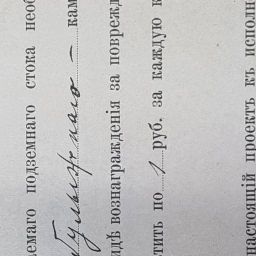 емаго подземнаго стока необ
булыжнаго – кам
идѣ вознагражденія за поврежд
тить по 1 руб. за каждую к
настоящій проектъ къ исполн